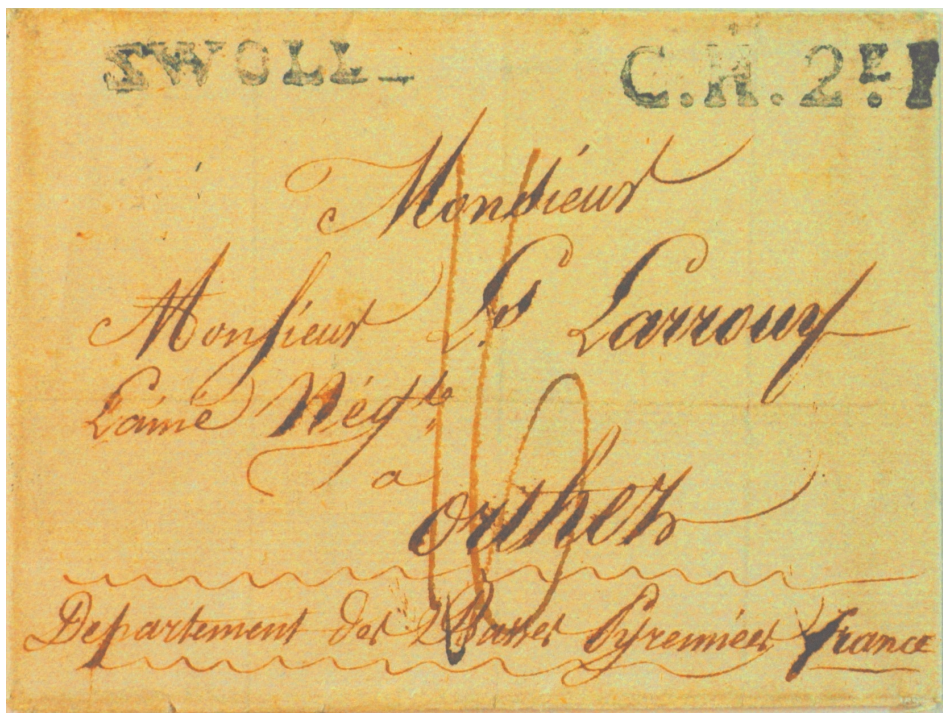 ZWOLL
C.H.2.E
Monsieur
Monsieur Larrouy
Lainé Négte
a
orthez
Departement des Basses Pyrennées france